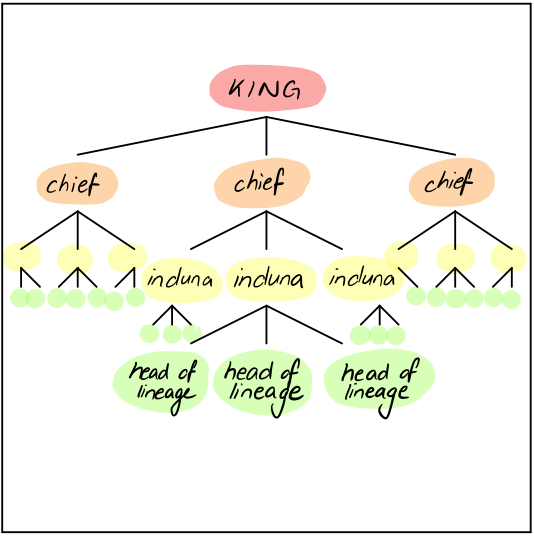 KING
chief chief chief
induna induna induna
head of head of head of
lineage lineage lineage